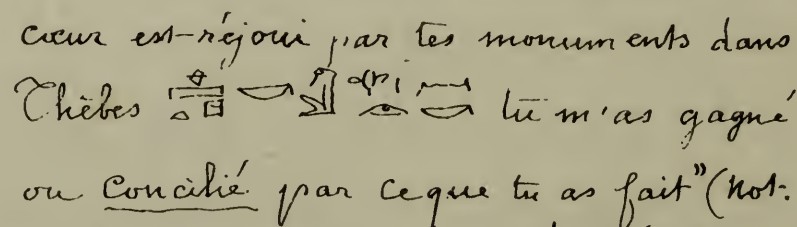 cœur est-réjoui par tes monuments dans
Thèbes tu m'as gagné
ou concilié par ce que tu as fait" (not.